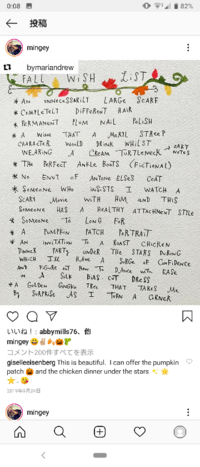 0:08
82%
投稿
mingey
bymariandrew
FALL WISH LIST
* AN UNNECESSARILY LARGE SCARF
* COMPLETELY DIFFERENT HAIR
* PERMANENT PLUM NAIL POLISH
* A WINE THAT A MERYL STREEP
CHARACTER WOULD DRINK WHILST
WEARING A CREAM TURTLENECK → OAKY NOTES
* THE PERFECT ANKLE BOOTS (FICTIONAL)
* NO ENVY OF ANYONE ELSE'S COAT
* SOMEONE WHO INSISTS I WATCH A
SCARY MOVIE WITH HIM AND THIS
SOMEONE HAS A HEALTHY ATTACHMENT STYLE
* SOMEONE TO LONG FOR
* A PUMPKIN PATCH PORTRAIT
* AN INVITATION TO A ROAST CHICKEN
DINNER PARTY UNDER THE STARS DURING
WHICH I'LL HAVE A SURGE OF CONFIDENCE
AND FIGURE OUT HOW TO DANCE WITH EASE
IN A SILK BIAS CUT DRESS
* A GOLDEN GINGKO TREE THAT TAKES ME
BY SURPRISE AS I TURN A CORNER
いいね！: abbymills76、他
mingey 😃✌🍂🎃🌽
コメント200件すべてを表示
giselleeisenberg This is beautiful. I can offer the pumpkin
patch 🎃 and the chicken dinner under the stars
2019年9月24日
mingey